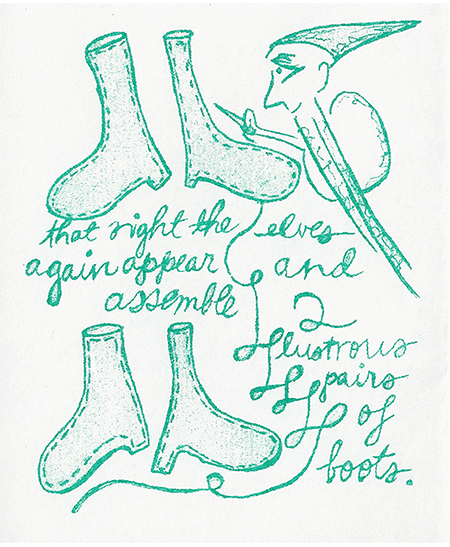 that night the elves
again appear and
assemble 2
lustrous
pairs
of
boots.